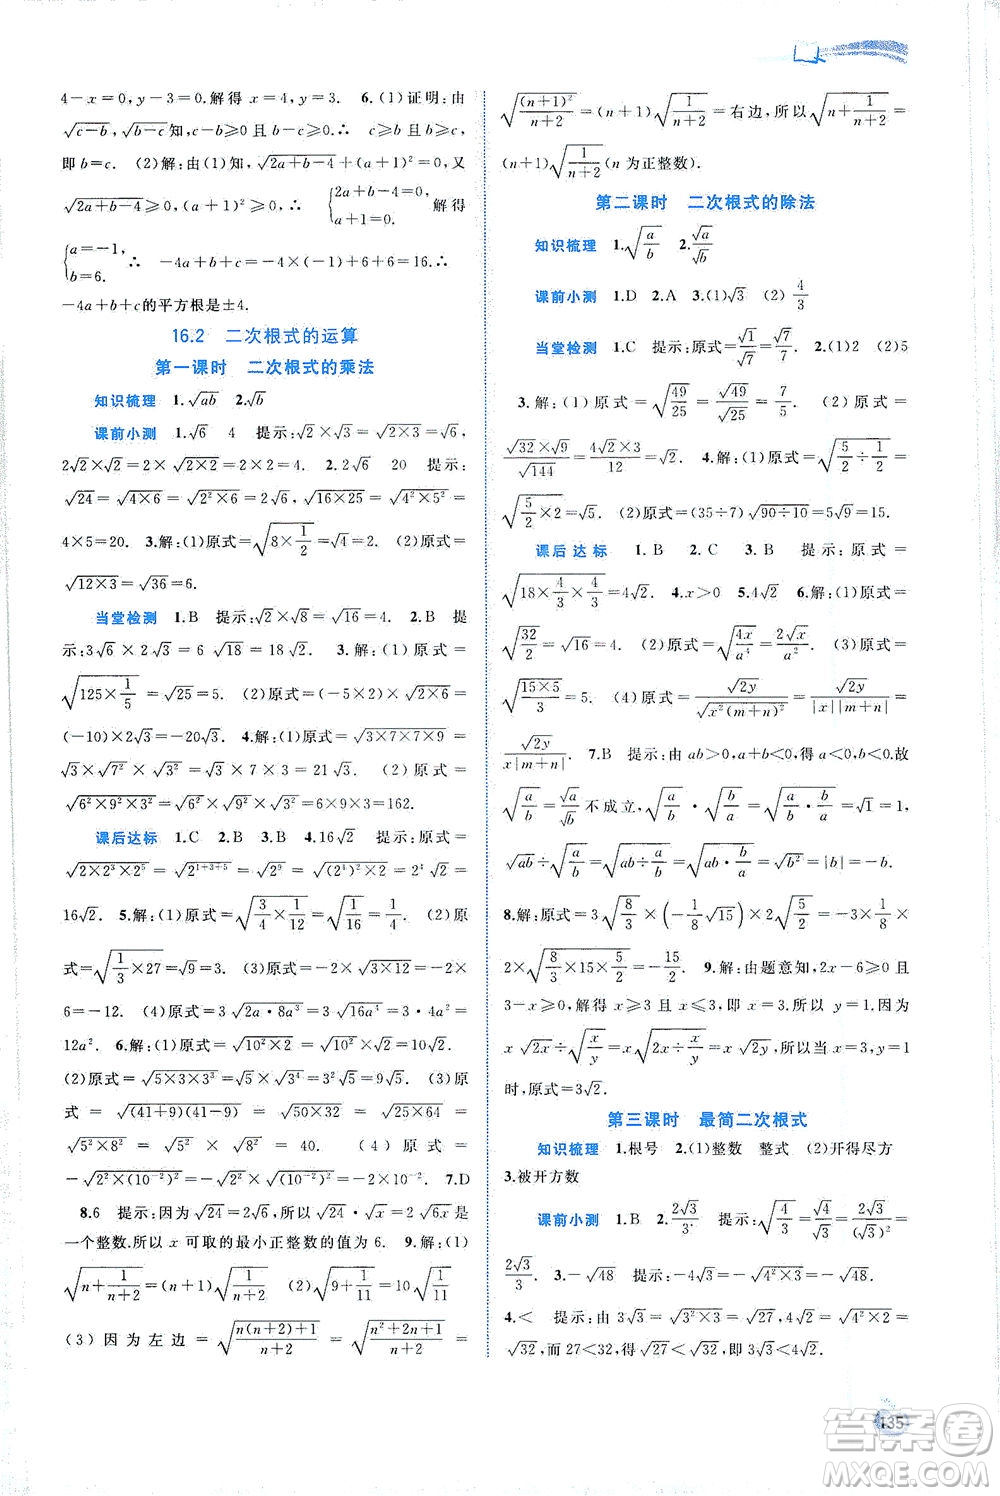 4-x=0,y-3=0.解得 x=4,y=3. 6.(1)证明:由
√(c-b),√(b-c)知,c-b≥0 且 b-c≥0.∴ c≥b 且 b≥c,
即 b=c. (2)解:由(1)知,√(2a+b-4)+(a+1)²=0,又
√(2a+b-4)≥0,(a+1)²≥0.∴ {2a+b-4=0, a+1=0. 解得
{a=-1, b=6. ∴ -4a+b+c=-4×(-1)+6+6=16.∴
-4a+b+c的平方根是±4.
16.2 二次根式的运算
第一课时 二次根式的乘法
知识梳理 1.√ab 2.√b
课前小测 1.√6 4 提示:√2×√3=√(2×3)=√6,
2√2×√2=2×√(2×2)=2×2=4. 2.2√6 20 提示:
√24=√(4×6)=√(2²×6)=2√6,√(16×25)=√(4²×5²)=
4×5=20. 3.解:(1)原式=√(8×1/2)=√4=2. (2)原式=
√(12×3)=√36=6.
当堂检测 1.B 提示:√2×√3=√(2×3)=√6. 2.B 提
示:3√6×√3=3√(6×3)=3√18=3√(3²×2)=9√2. 3.解:(1)原式=
√(125×1/5)=√25=5. (2)原式=(-5×2)×√(2×6)=
(-10)×2√3=-20√3. 4.解:(1)原式=√(3×7×7×9)=
√3×√7²×√3²=√3×7×3=21√3. (2)原式=
√(6²×9²×3²)=√6²×√9²×√3²=6×9×3=162.
课后达标 1.C 2.B 3.B 4.16√2 提示:原式=
√(2×2³×2⁵)=√(2^(1+3+5))=√2⁹=√(2⁴)²×2=2⁴√2=
16√2. 5.解:(1)原式=√(3/4×1/12)=√(1/16)=1/4. (2)原
式=√(1/3×27)=√9=3. (3)原式=-2×√(4×9)=-2×
6=-12. (4)原式=3√(2a·8a³)=3√(16a⁴)=3×4a²=
12a². 6.解:(1)原式=√(10²×2)=√10²×√2=10√2.
(2)原式=√(5×3×3³)=√(5×3⁴)=9√5. (3)原
式=√((41+9)(41-9))=√(50×32)=
√(5²×8²)=√5²×√8²=5×8=40. (4)原式=
-√(2²×(10⁻²)²)=-√2²×√(10⁻²)²=-2×10⁻². 7.D
8.6 提示:因为√24=2√6,所以√24·√x=2√6x=
一个整数.所以 x 可取的最小正整数的值为 6. 9.解:(1)
√(n+1/(n+2)) (2)√(9+1/11)=10√(1/11)
(3)因为左边=√((n(n+2)+1)/(n+2))=√((n²+2n+1)/(n+2))=
√((n+1)²/(n+2))=(n+1)√(1/(n+2))=右边,所以√(n+1/(n+2))=
(n+1)√(1/(n+2))(n 为正整数).
第二课时 二次根式的除法
知识梳理 1.√(a/b) 2.√a/√b
课前小测 1.D 2.A 3.(1)√3 (2)4/3
当堂检测 1.C 提示:原式=√1/√7=√7/7. 2.(1)2 (2)5
3.解:(1)原式=√(49/25)=√49/√25=7/5. (2)原式=
√32×√9/√144=4√2×3/12=√2. 4.解:(1)原式=√(5/2÷1/2)=
√(5/2×2)=√5. (2)原式=(35÷7)√(90÷10)=5√9=15.
课后达标 1.B 2.C 3.B 提示:原式=
√(18×4/3×4/3)=4√2. 4.x>0 5.4√2 6.解:(1)原式=
√(32/2)=√16=4. (2)原式=√(4x/a⁴)=2√x/a². (3)原式=
√(15×5/3)=5. (4)原式=√2y/√(x²(m+n)²)=√2y/|x||m+n|=
√2y/x|m+n|. 7.B 提示:由 ab>0,a+b<0,得 a<0,b<0,故
√(a/b)=√a/√b不成立,√(a/b)·√(b/a)=√(a/b·b/a)=√1=1,
√ab÷√(a/b)=√(ab÷a/b)=√(ab·b/a)=√b²=|b|=-b.
8.解:原式=3√(8/3)×(-1/8√15)×2√(5/2)=-3×1/8×
2×√(8/3×15×5/2)=-3/4×10=-15/2. 9.解:由题意知,2x-6≥0 且
3-x≥0,解得 x≥3 且 x≤3,即 x=3.所以 y=1.因为
x√2x÷√(x/y)=x√(2x÷x/y)=x√2y,所以当 x=3,y=1
时,原式=3√2.
第三课时 最简二次根式
知识梳理 1.根号 2.(1)整数 整式 (2)开得尽方
3.被开方数
课前小测 1.B 2.2√3/3. 提示:√(4/3)=√4/√3=2√3/(√3)²=
2√3/3. 3.-√48 提示:-4√3=-√(4²×3)=-√48.
4.< 提示:3√3=√(3²×3)=√27,4√2=√(4²×2)=
√32,而 27<32,所以√27<√32,即 3√3<4√2.
135
答案圈
MXQE.COM